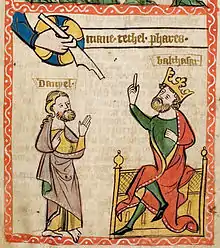 mane · techel · phares ·
danyel ·
balthasar